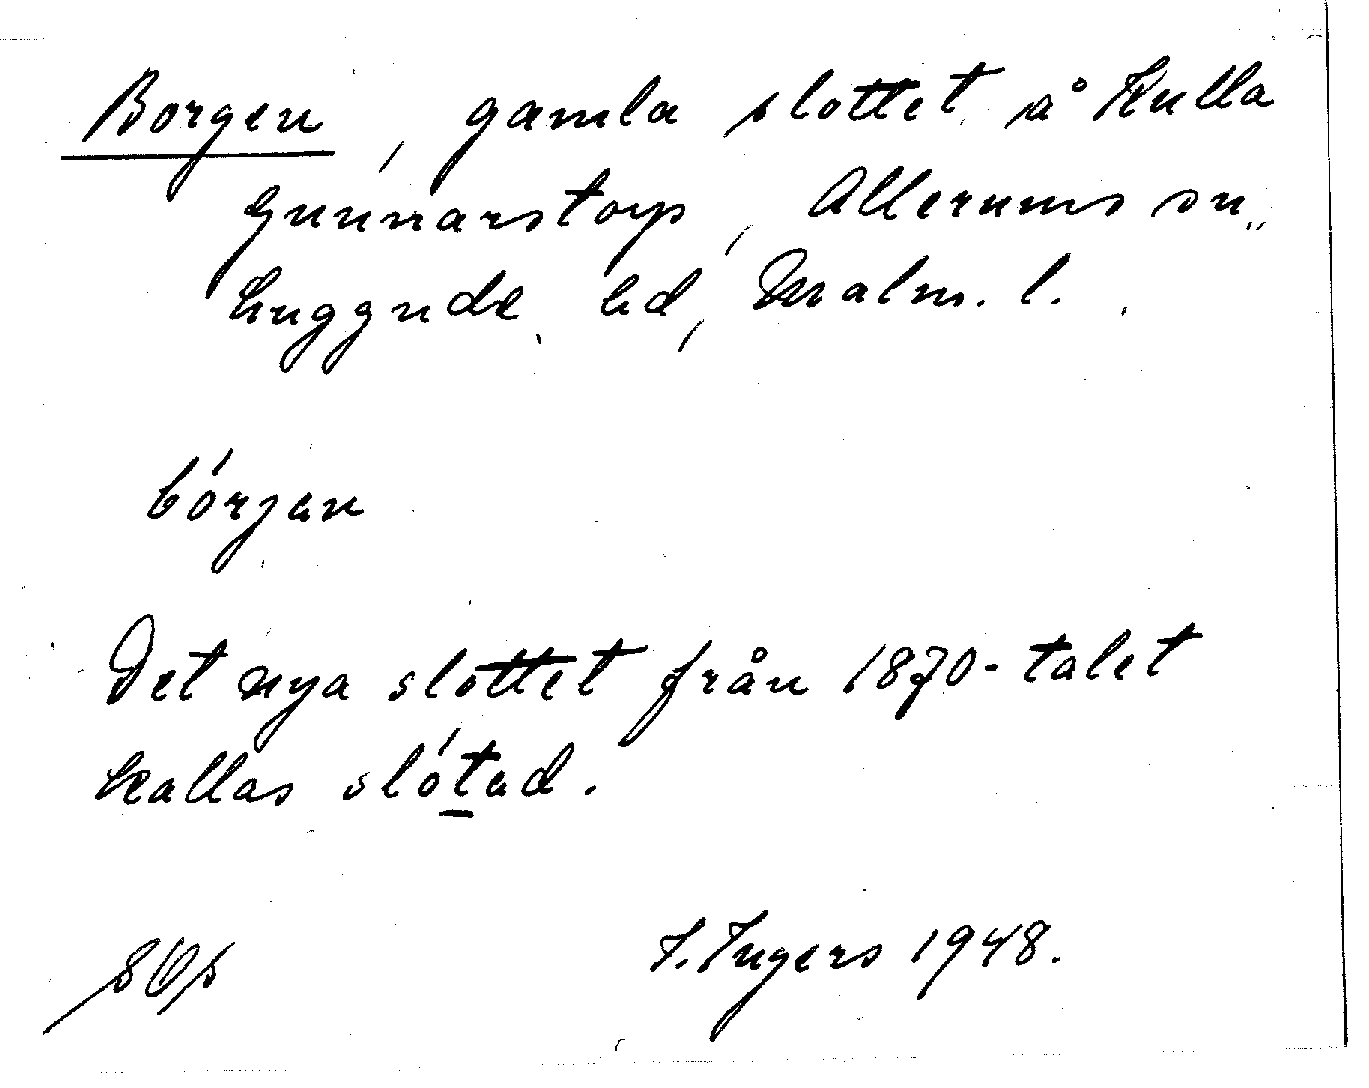 Borgen, gamla slottet å Kulla
Gunnarstorp, Allerums sn,
Luggude hd, Malm. l.
bórjan
Det nya slottet från 1870-talet
kallas slótad.
I. Ingers 1948.